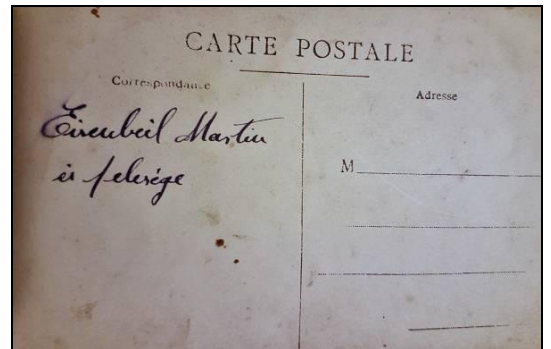 CARTE POSTALE
Correspondance
Eisenbeil Martin
és felesége
Adresse
M